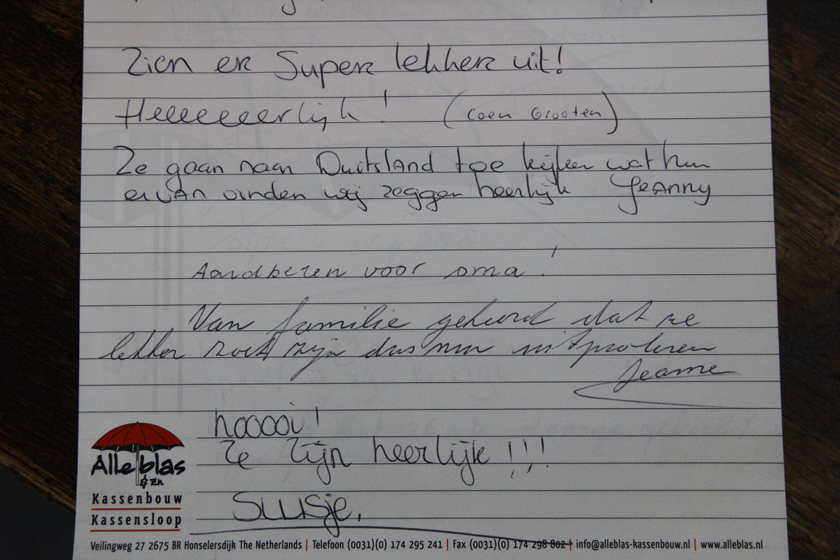 Zien er Super lekker uit!
Heeeeeeerlijk! (Coen Grooten)
Ze gaan naar Duitsland toe kijken wat hun
ervan vinden wij zeggen heerlijk Jeanny
Aardbeien voor oma!
Van familie gehoord dat ze
lekker zoet zijn dus nu uitproberen
Jeanne
hooooi!
Ze zijn heerlijk!!!
Suusje.
Alleblas
& Zn
Kassenbouw
Kassensloop
Veilingweg 27 2675 BR Honselersdijk The Netherlands | Telefoon (0031)(0) 174 295 241 | Fax (0031)(0) 174 298 802 | info@alleblas-kassenbouw.nl | www.alleblas.nl